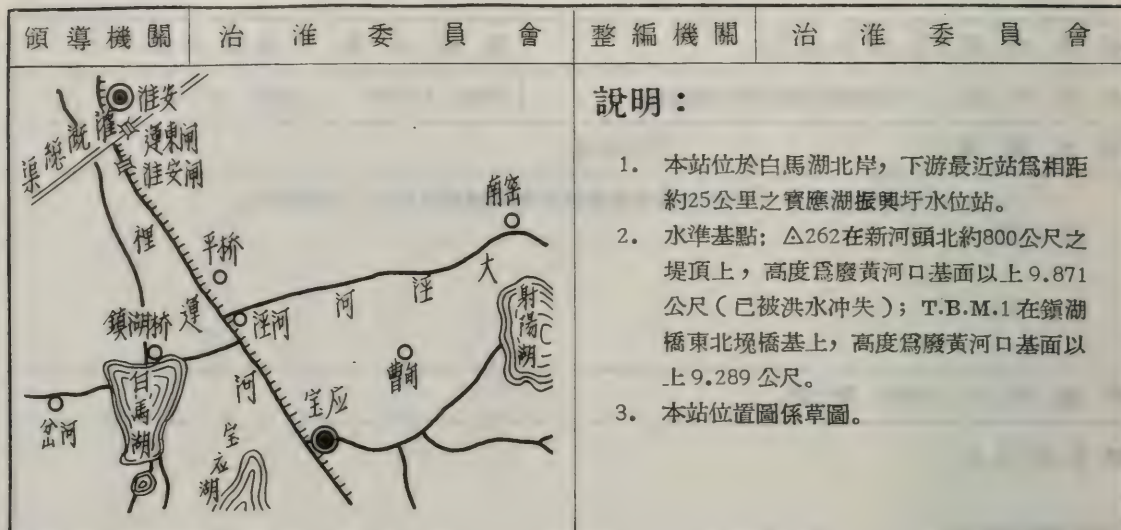 領導機關 治淮委員會 整編機關 治淮委員會
淮安
運東闸
淮安闸
灌溉總渠
南窑
平桥
裡運河
大泾河
射陽湖
鎮湖桥
泾河
曹甸
白馬湖
岔河
宝应
宝应湖
說明：
1. 本站位於白馬湖北岸，下游最近站爲相距
約25公里之寶應湖振興圩水位站。
2. 水準基點；△262在新河頭北約800公尺之
堤頂上，高度爲廢黃河口基面以上9.871
公尺（已被洪水冲失）；T.B.M.1在鎭湖
橋東北堍橋基上，高度爲廢黃河口基面以
上9.289公尺。
3. 本站位置圖係草圖。